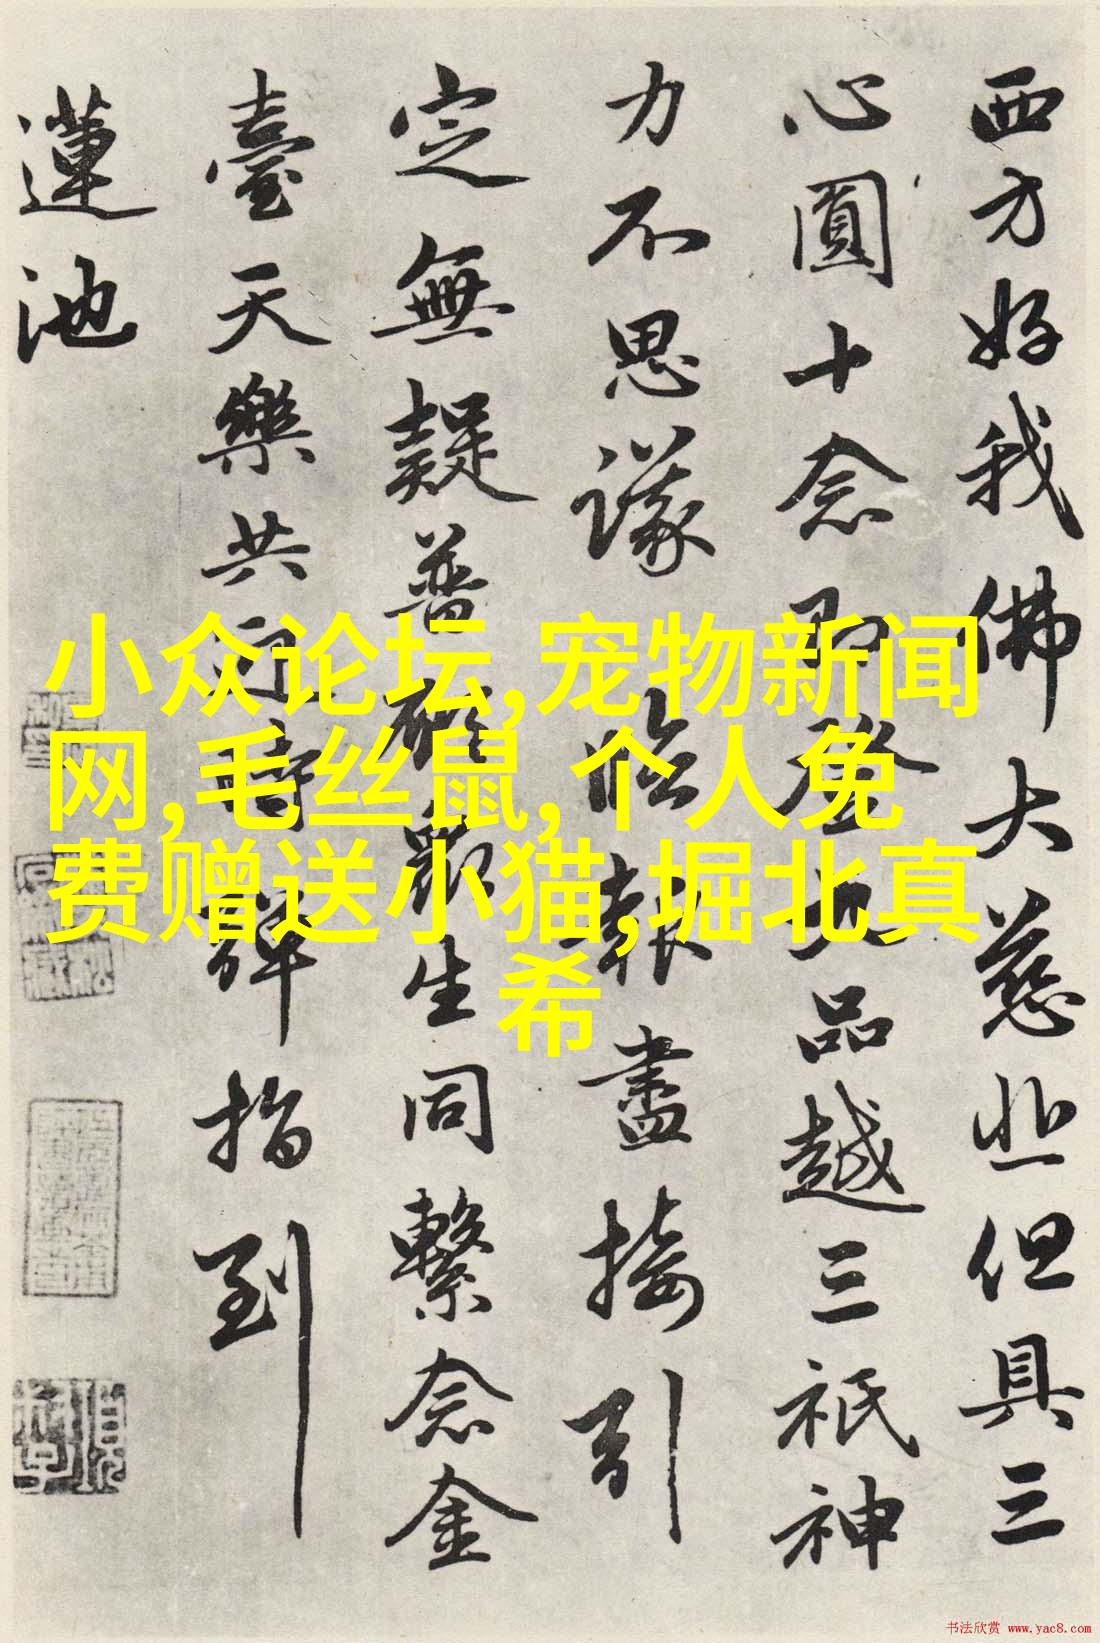 西方好我佛大慈悲但具三
心圓十念即登九品越三祇神
力不思議臨報盡接引
定無疑普願眾生同繫念金
臺天樂共迎時彈指到
蓮池
小众论坛,宠物新闻
网,毛丝鼠,个人免
费赠送小猫,堀北真
希
书法欣赏 www.yac8.com